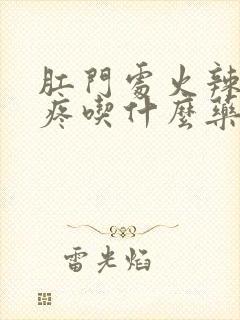 肛門處火辣
疼喫什麼藥
雷光焰